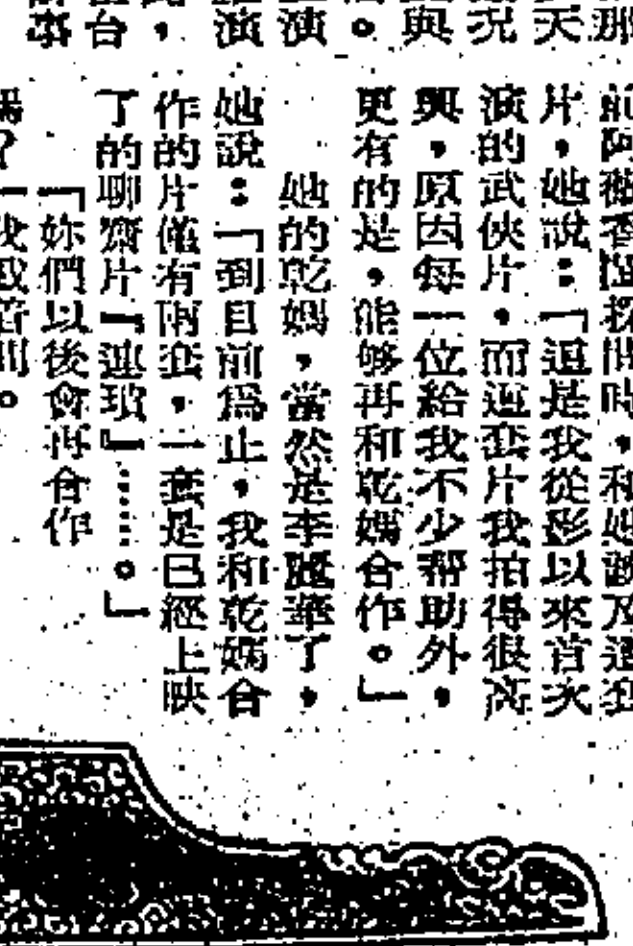 那
天
況
與
。
演
演
，
台
事
前阿薇香
片，她說：「這是我從影以來首次
演的武俠片，而這套片我拍得很高
興，原因每一位給我不少幫助外，
更有的是，能够再和乾媽合作。」
她的乾媽，當然是李麗華了，
她說：「到目前爲止，我和乾媽合
作的片僅有兩套，一套是已經上映
了的聊齋片『連瑣』……。」
「妳們以後會再合作
嗎？」我